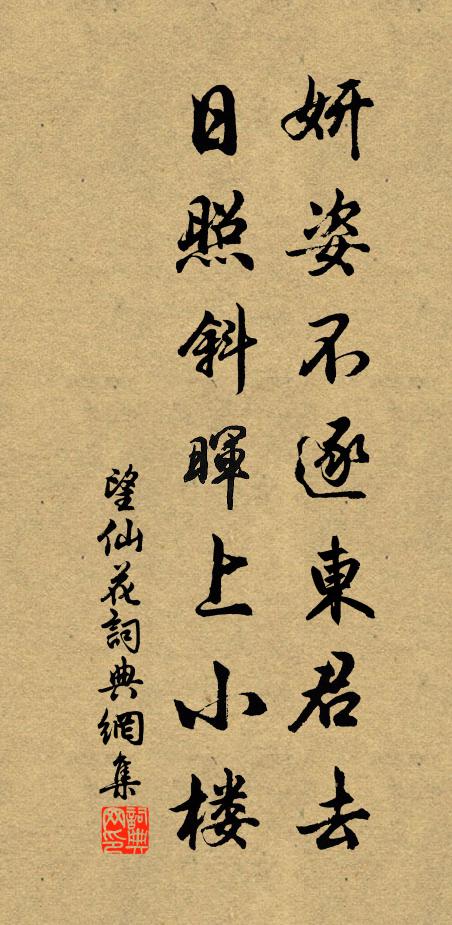 妍姿不逐東君去
日照斜暉上小楼
望仙花詞典網集
詞典
网印